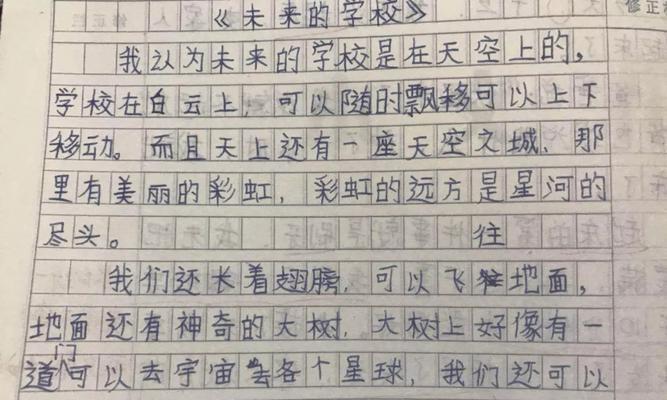 修正栏
修正
《未来的学校》
我认为未来的学校是在天空上的,
学校在白云上,可以随时飘移可以上下
移动。而且天上还有一座天空之城,那
里有美丽的彩虹,彩虹的远方是星河的
尽头。
往
我们还长着翅膀,可以飞地面,
地面还有神奇的大树,大树上好像有一
门
道可以去宇宙去各个星球,我们还可以